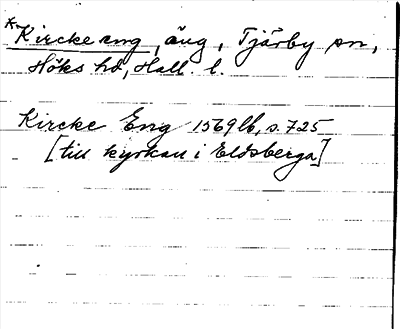 *Kircke eng, äng, Tjärby sn,
Höks hd, Hall. l.
Kircke Eng 1569 lb, s. 725
[till kyrkan i Eldsberga]